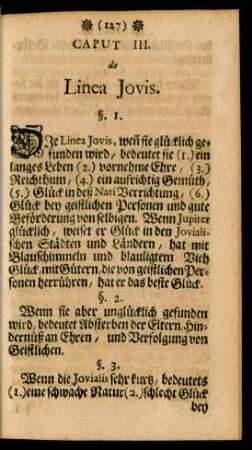 (127)
CAPUT III.
de
Linea Jovis.
§. 1.
DJe Linea Jovis, weñ sie glücklich ge-
funden wird, bedeutet sie (1.) ein
langes Leben (2.) vornehme Ehre, (3.)
Reichthum, (4.) ein aufrichtig Gemüth,
(5.) Glück in deß Nati Verrichtung, (6.)
Glück bey geistlichen Personen und gute
Beförderung von selbigen. Wenn Jupiter
glücklich, weiset er Glück in den Joviali-
schen Städten und Ländern, hat mit
Blauschimmeln und blauligtem Vieh
Glück, mit Gütern, die von geistlichen Per-
sonen herrühren, hat er das beste Glück.
§. 2.
Wenn sie aber unglücklich gefunden
wird, bedeutet Absterben der Eltern, Hin-
dernüß an Ehren, und Verfolgung von
Geistlichen.
§. 3.
Wenn die Jovialis sehr kurtz, bedeutets
(1.) eine schwache Natur (2.) schlecht Glück
bey